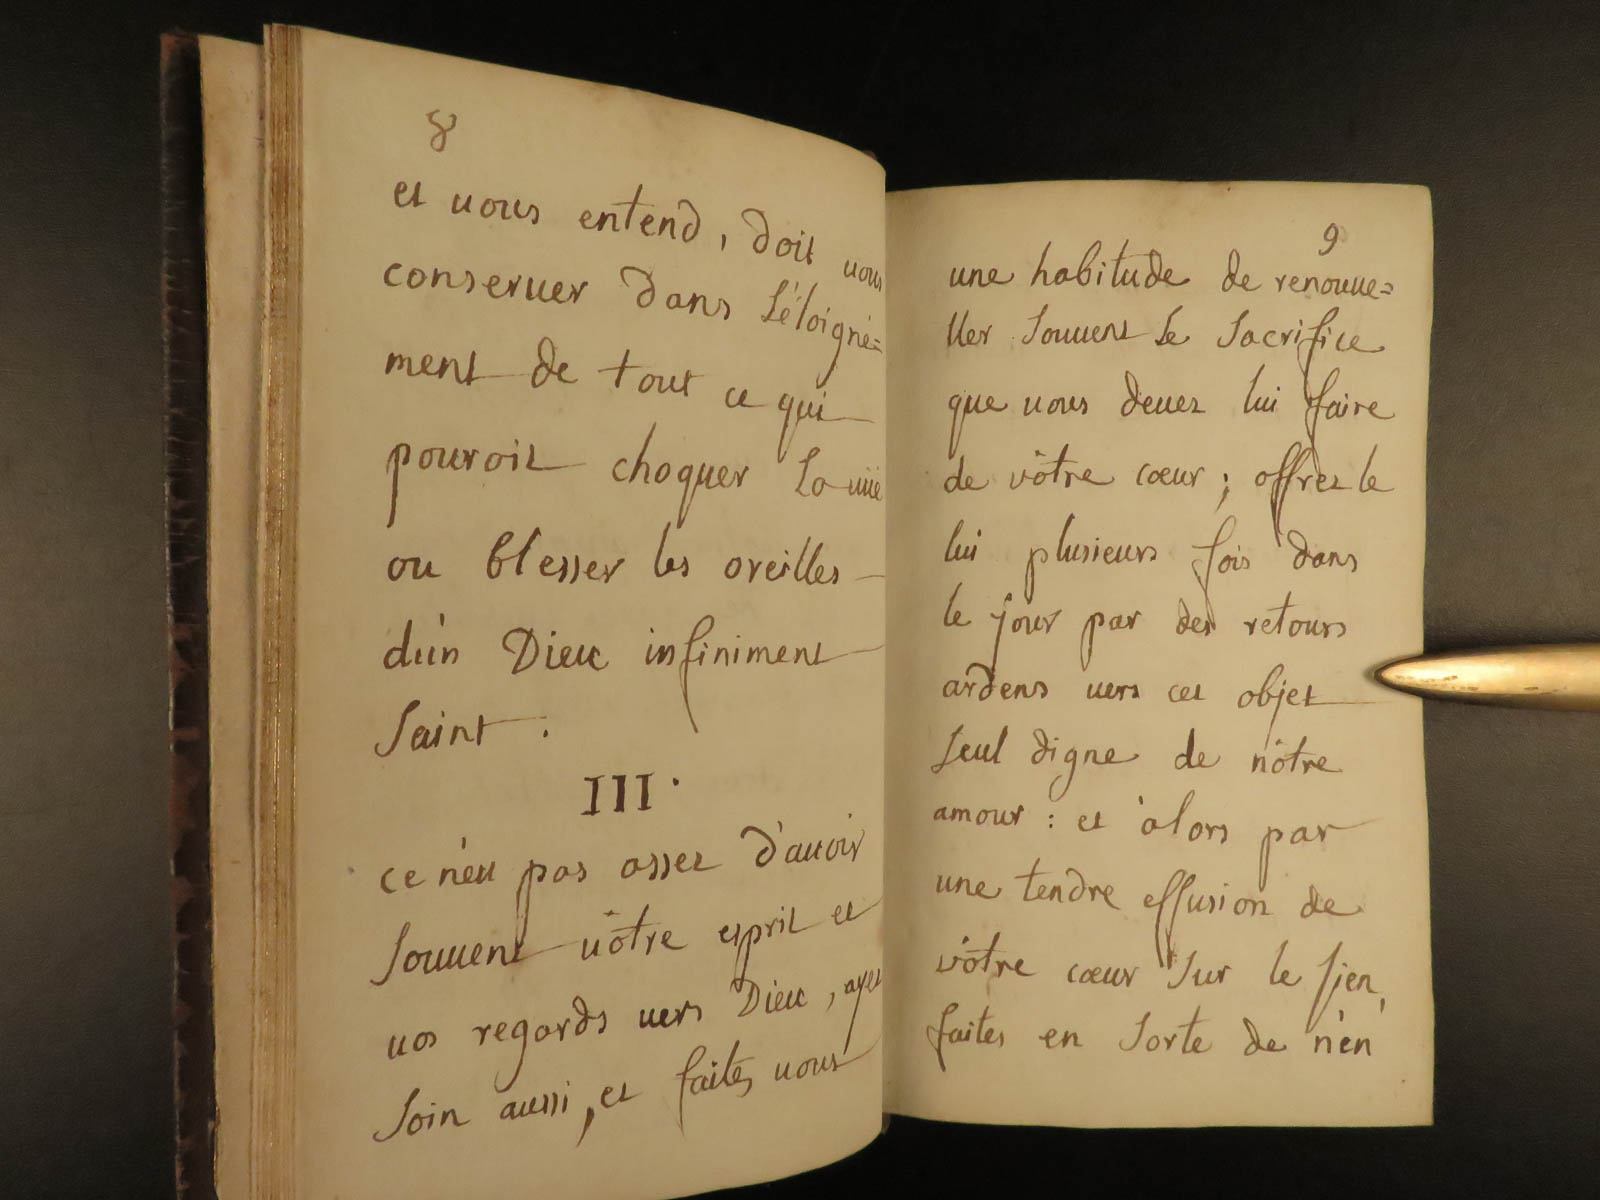 8
et uous entend, doit uous
conseruer dans L'éloigné=
ment de tout ce qui
pouroit choquer La uüe
ou blesser les oreilles
d'ún Dieu infiniment
Saint.
III.
ce n'ést pas assez d'auoir
Souuent uôtre esprit et
uos regards uers Dieu, ayez
Soin aussi, et faites uous
9
une habitude de renouue=
ller Souuent Le Sacrifice
que uous deuez lui faire
de vôtre cœur; offrez le
lui plusieurs fois dans
le jour par des retours
ardens uers cet objet
Seul digne de nôtre
amour: et àlors par
une tendre effusion de
vôtre cœur Sur le Sien,
faites en Sorte de n'én